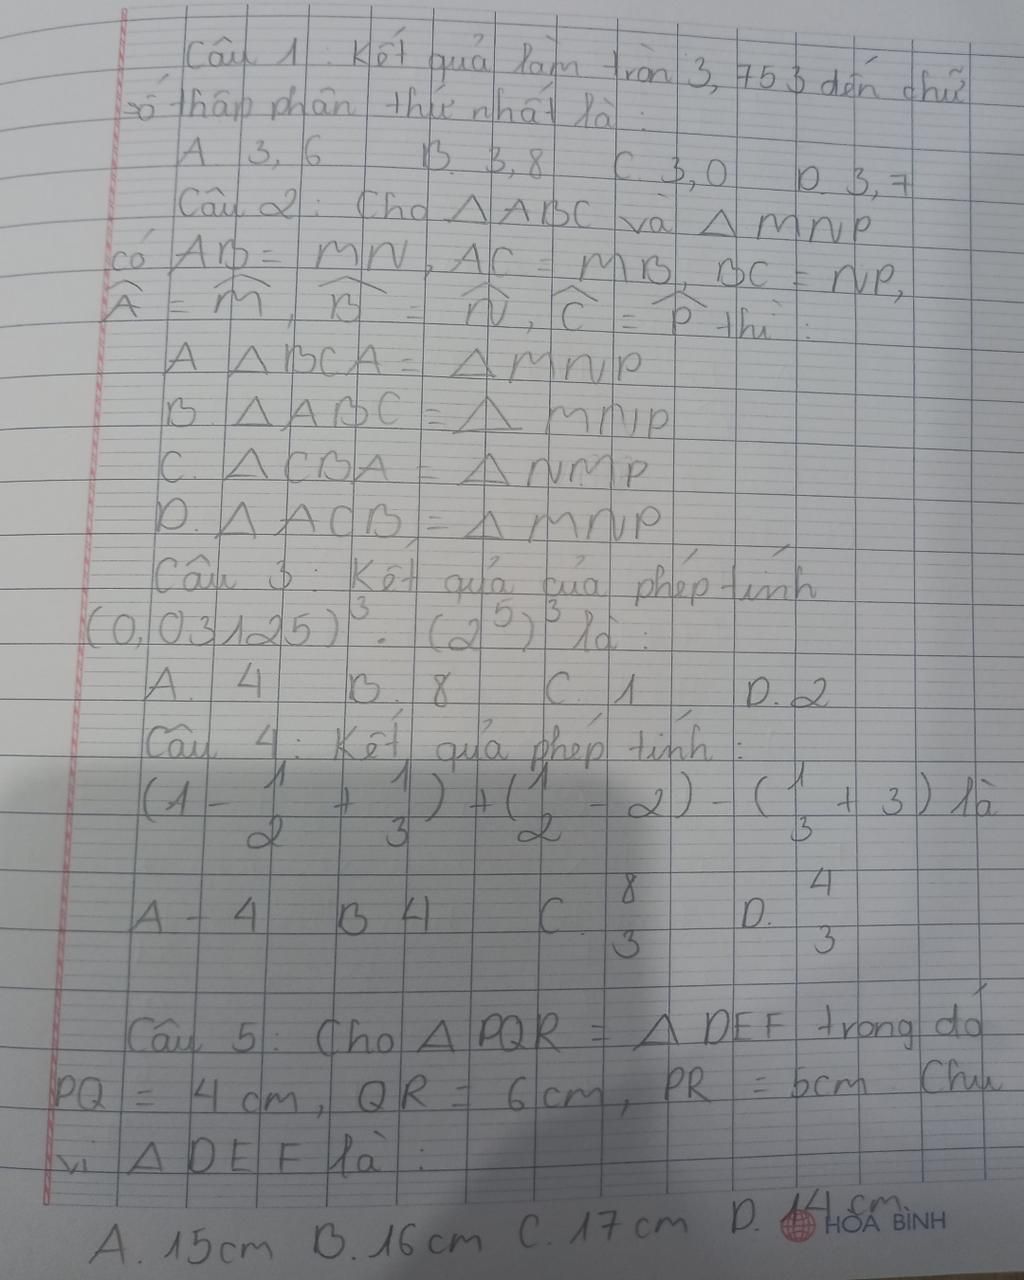 Câu 1: Kết quả làm tròn 3,753 đến chữ
số thập phân thứ nhất là:
A 3,6 B. 3,8 C 3,0 D. 3,7
Câu 2: Cho Δ ABC và Δ MNP
có AB = MN, AC = MB, BC = NP,
Â = M̂, B̂ = N̂, Ĉ = P̂ thì:
A Δ BCA = Δ MNP
B. Δ ABC = Δ MNP
C. Δ CBA = Δ NMP
D. Δ ACB = Δ MNP
Câu 3: Kết quả của phép tính
(0,03125)³ . (2⁵)³ là:
A. 4 B. 8 C. 1 D. 2
Câu 4: Kết quả phép tính:
(1 - 1/2 + 1/3) + (1/2 - 2) - (1/3 + 3) là
A - 4 B 4 C. 8/3 D. 4/3
Câu 5: Cho Δ PQR = Δ DEF trong đó
PQ = 4 cm, QR = 6 cm, PR = 5cm Chu
vi Δ DEF là:
A. 15cm B. 16cm C. 17cm D. 14 cm
HÒA BÌNH